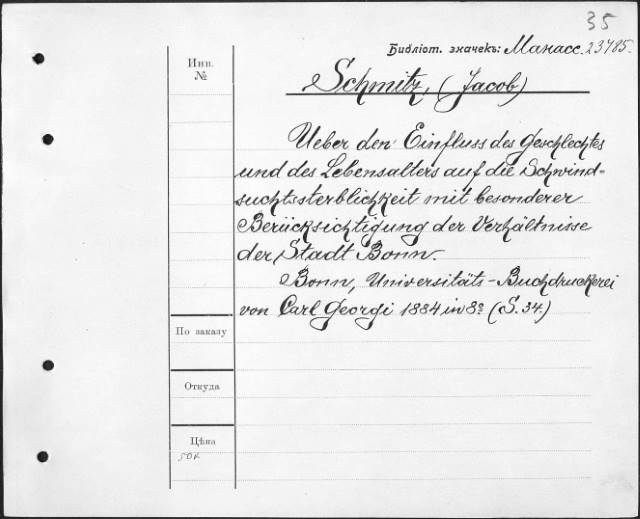 35
Библіот. значекъ: Манасс. 23785.
Инв.
№
Schmitz, (Jacob)
Ueber den Einfluss des Geschlechtes
und des Lebensalters auf die Schwind-
suchtssterblichkeit mit besonderer
Berücksichtigung der Verhältnisse
der Stadt Bonn.
Bonn, Universitäts-Buchdruckerei
von Carl Georgi 1884 in 8º (S. 34.)
По заказу
Откуда
Цѣна
50к